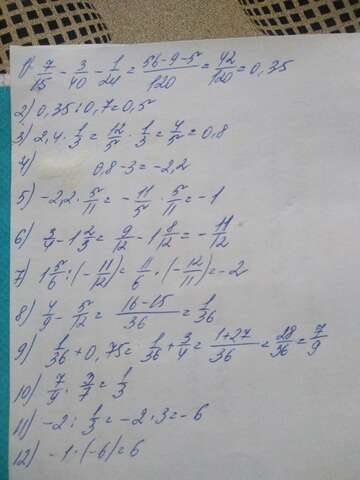 1) 7/15 - 3/40 - 1/24 = 56-9-5/120 = 42/120 = 0,35
2) 0,35 : 0,7 = 0,5
3) 2,4 · 1/3 = 12/5 · 1/3 = 4/5 = 0,8
4) 0,8-3 = -2,2
5) -2,2 · 5/11 = - 11/5 · 5/11 = -1
6) 3/4 - 1 2/3 = 9/12 - 1 8/12 = - 11/12
7) 1 5/6 : (- 11/12) = 11/6 · (- 12/11) = -2
8) 4/9 - 5/12 = 16-15/36 = 1/36
9) 1/36 + 0,75 = 1/36 + 3/4 = 1+27/36 = 28/36 = 7/9
10) 7/9 · 3/7 = 1/3
11) -2 : 1/3 = -2 · 3 = -6
12) -1 · (-6) = 6